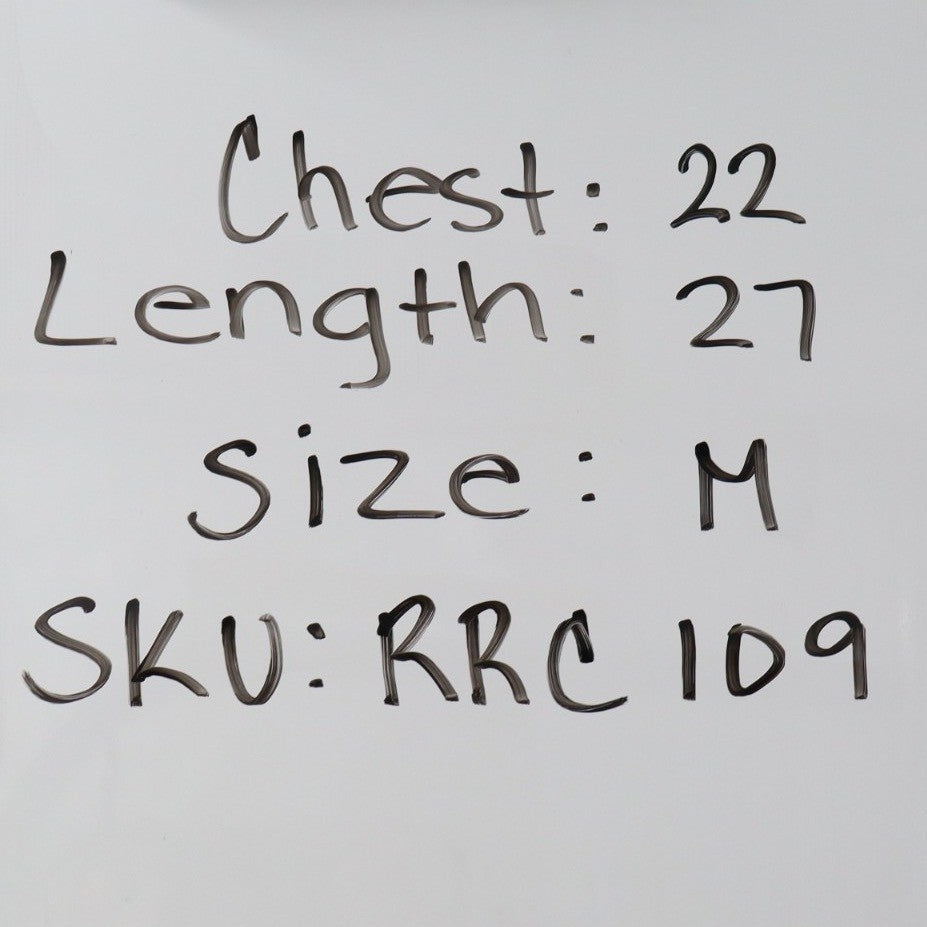 Chest: 22
Length: 27
Size: M
SKU: RRC 109